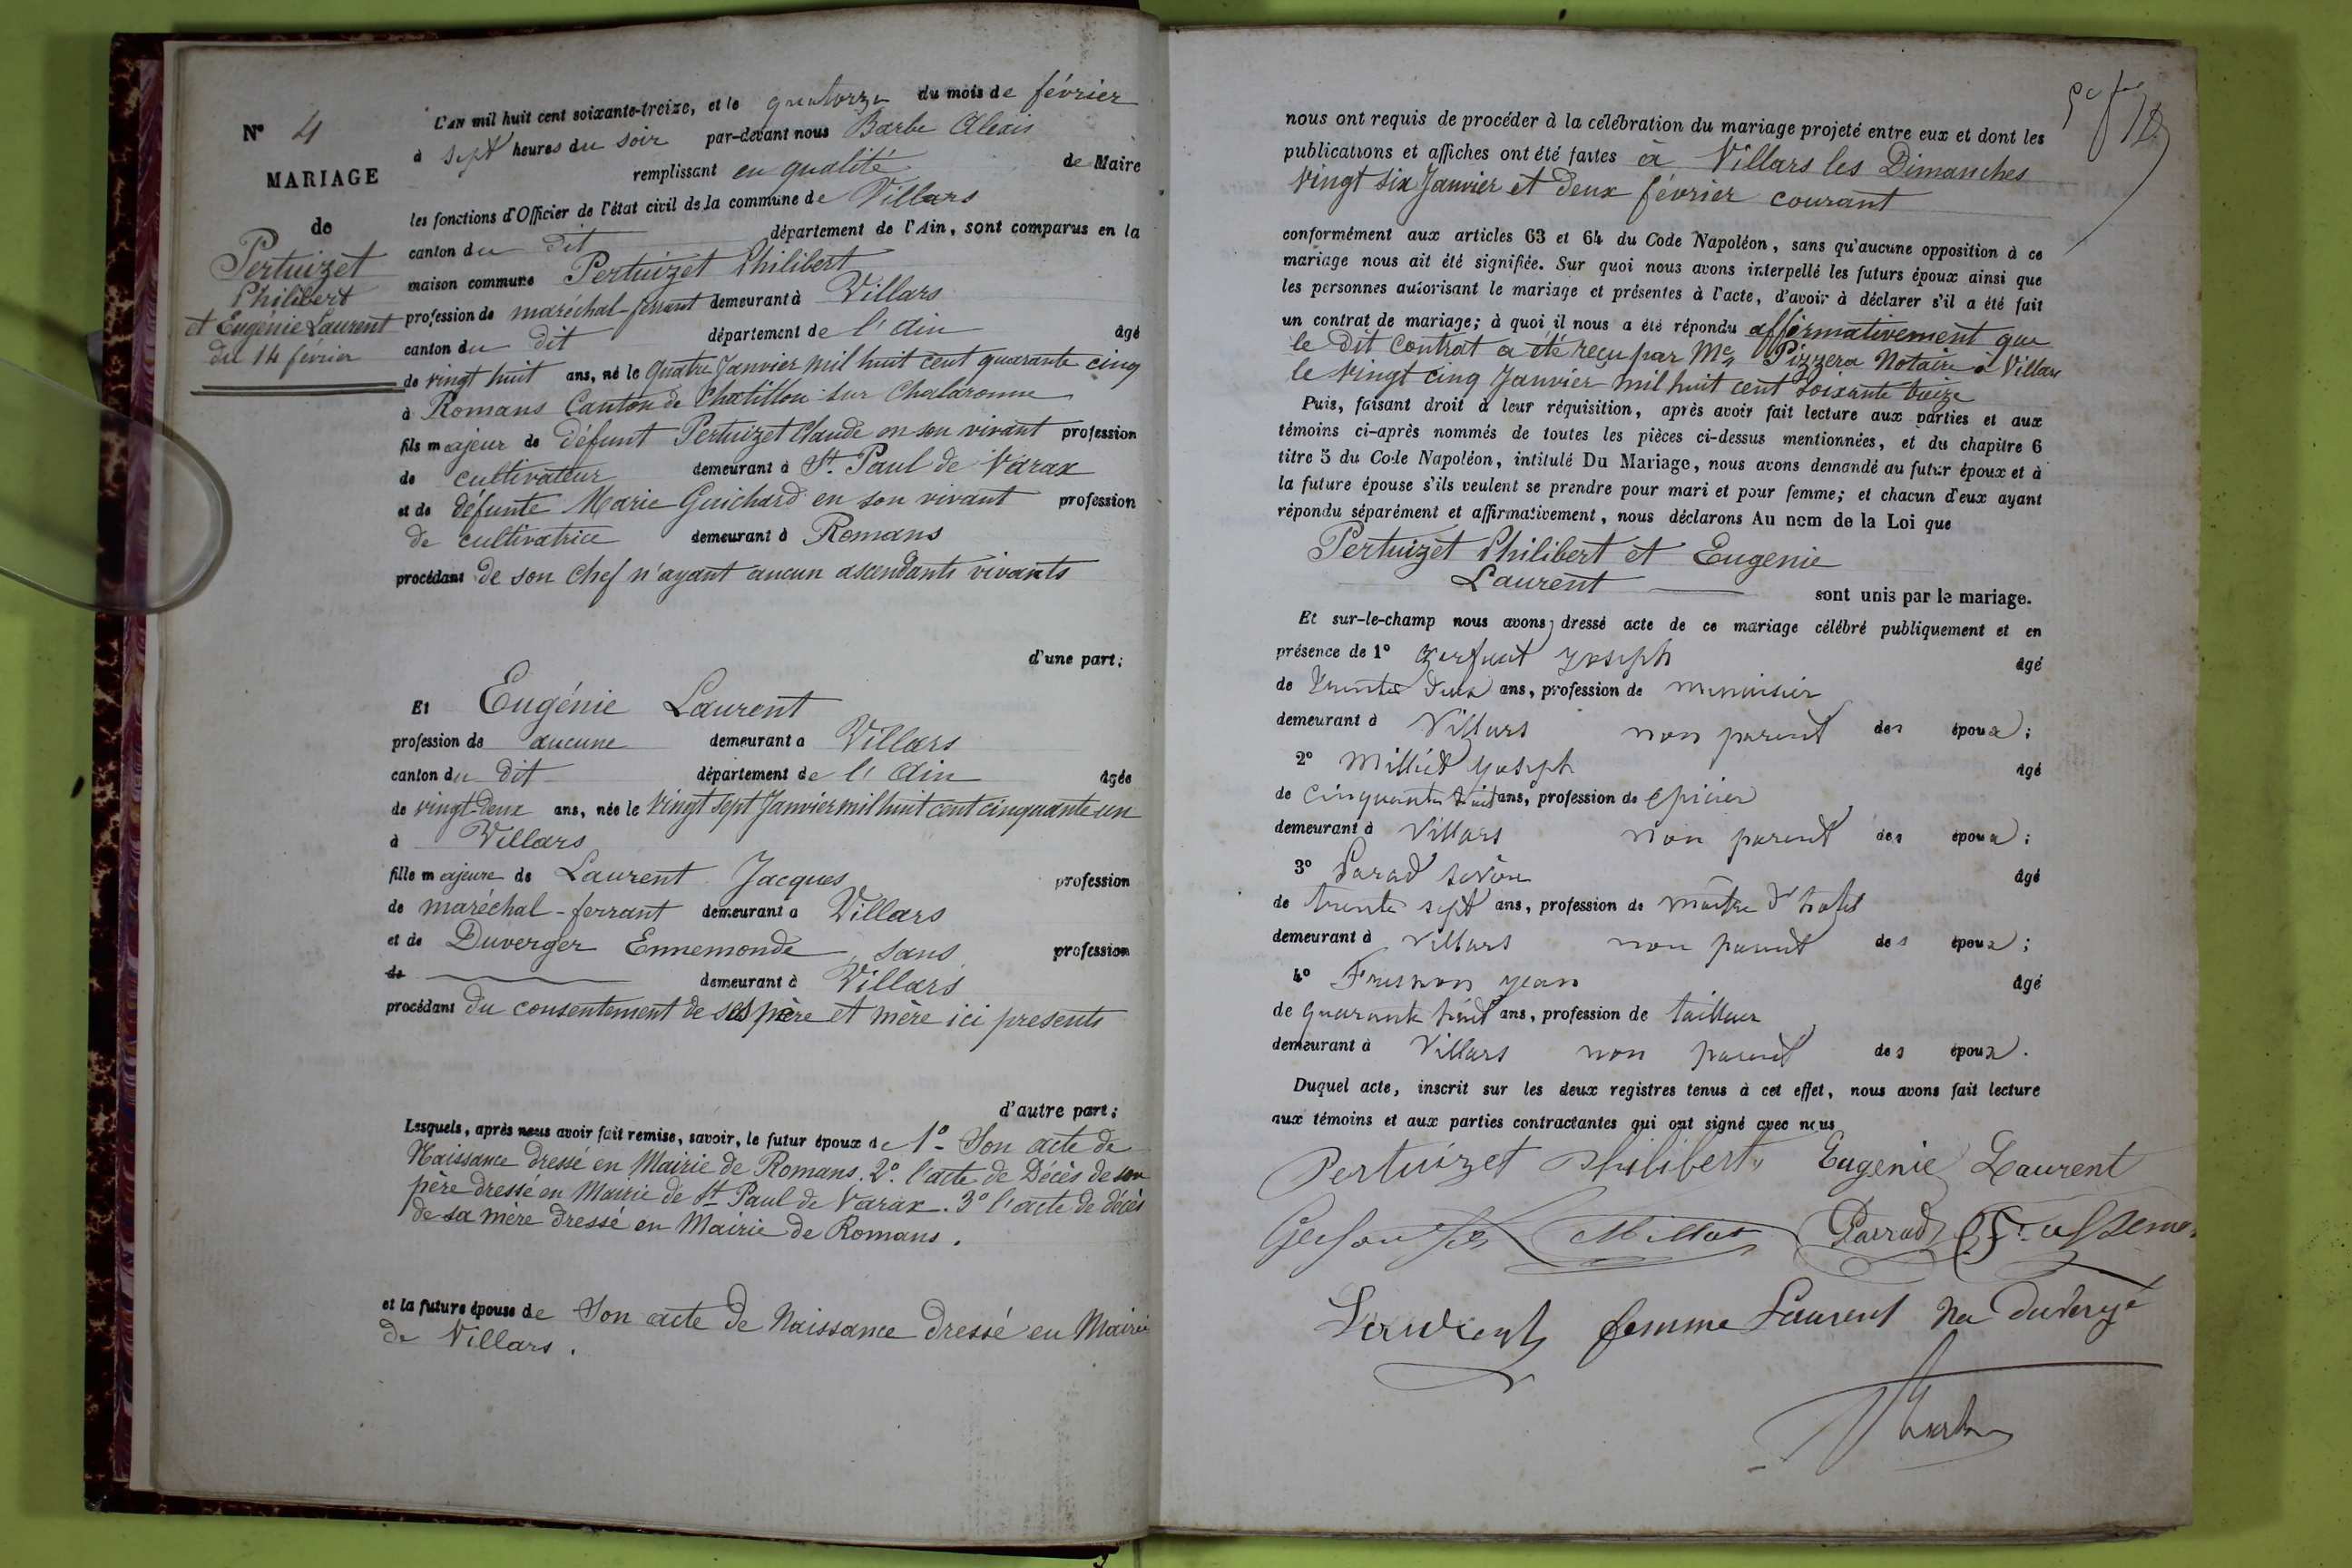 N° 4
MARIAGE
de
Pertuizet
Philibert
et Eugénie Laurent
du 14 février
L'AN mil huit cent soixante-treize, et le quatorze du mois de février
à sept heures du soir par-devant nous Barbe Alexis
remplissant en qualité de Maire
les fonctions d'Officier de l'état civil de la commune de Villars
canton du dit département de l'Ain, sont comparus en la
maison commune Pertuizet Philibert
profession de maréchal-ferrant demeurant à Villars
canton du dit département de l'Ain âgé
de vingt huit ans, né le quatre Janvier mil huit cent quarante cinq
à Romans Canton de Chatillon sur Chalaronne
fils majeur de défunt Pertuizet Claude en son vivant profession
de cultivateur demeurant à St. Paul de Varax
et de défunte Marie Guichard en son vivant profession
de cultivatrice demeurant à Romans
procédant de son chef n'ayant aucun ascendants vivants
d'une part;
Et Eugénie Laurent
profession de aucune demeurant à Villars
canton du dit département de l'Ain âgée
de vingt-deux ans, née le vingt sept Janvier mil huit cent cinquante un
à Villars
fille majeure de Laurent Jacques profession
de maréchal-ferrant demeurant à Villars
et de Duverger Ennemonde sans profession
de demeurant à Villars
procédant du consentement de ses père et mère ici presents
d'autre part;
Lesquels, après nous avoir fait remise, savoir, le futur époux de 1° Son acte de
Naissance dressé en Mairie de Romans. 2° l'acte de Décès de son
père dressé en Mairie de St Paul de Varax. 3° l'acte de décès
de sa mère dressé en Mairie de Romans.
et la future épouse de Son acte de Naissance dressé en Mairie
de Villars.
nous ont requis de procéder à la célébration du mariage projeté entre eux et dont les
publications et affiches ont été faites à Villars les Dimanches
vingt six Janvier et deux février courant
conformément aux articles 63 et 64 du Code Napoléon, sans qu'aucune opposition à ce
mariage nous ait été signifiée. Sur quoi nous avons interpellé les futurs époux ainsi que
les personnes autorisant le mariage et présentes à l'acte, d'avoir à déclarer s'il a été fait
un contrat de mariage; à quoi il nous a été répondu affirmativement que
le dit Contrat a été reçu par Me Pizzera Notaire à Villars
le vingt cinq Janvier mil huit cent soixante treize
Puis, faisant droit à leur réquisition, après avoir fait lecture aux parties et aux
témoins ci-après nommés de toutes les pièces ci-dessus mentionnées, et du chapitre 6
titre 5 du Code Napoléon, intitulé Du Mariage, nous avons demandé au futur époux et à
la future épouse s'ils veulent se prendre pour mari et pour femme; et chacun d'eux ayant
répondu séparément et affirmativement, nous déclarons Au nom de la Loi que
Pertuizet Philibert et Eugenie
Laurent
sont unis par le mariage.
Et sur-le-champ nous avons dressé acte de ce mariage célébré publiquement et en
présence de 1° Joseph âgé
de trente deux ans, profession de menuisier
demeurant à Villars non parent des époux;
2° Joseph âgé
de cinquante huit ans, profession de épicier
demeurant à Villars non parent des époux;
3° âgé
de trente sept ans, profession de maître d'hotel
demeurant à Villars non parent des époux;
4° jean âgé
de quarante huit ans, profession de tailleur
demeurant à Villars non parent des époux.
Duquel acte, inscrit sur les deux registres tenus à cet effet, nous avons fait lecture
aux témoins et aux parties contractantes qui ont signé avec nous
Pertuizet Philibert Eugenie Laurent
Millot Parrad
Laurent femme Laurent né Duvergé